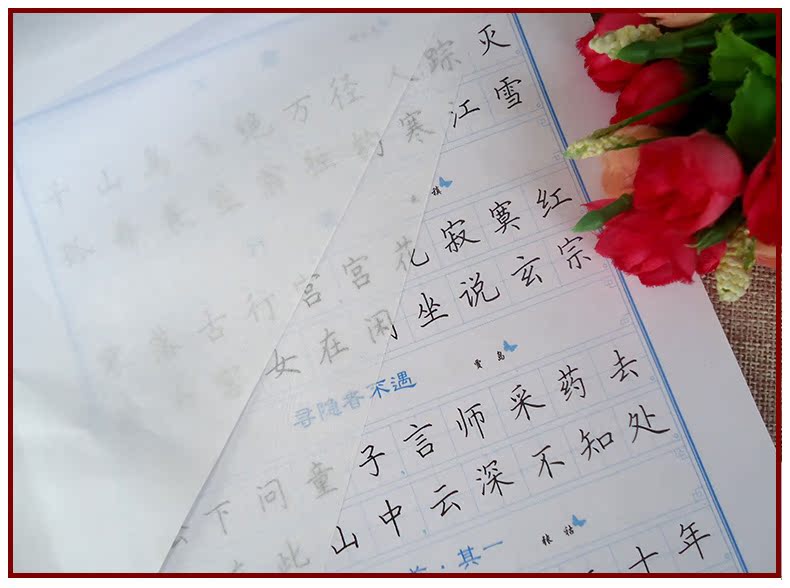 千山鸟飞绝万径人踪灭
孤舟蓑笠翁独钓寒江雪
稹
寥落古行宫宫花寂寞红
女在闲坐说玄宗
贾岛
寻隐者不遇
下问童子言师采药去
在此山中云深不知处
张祜
·其一
十年